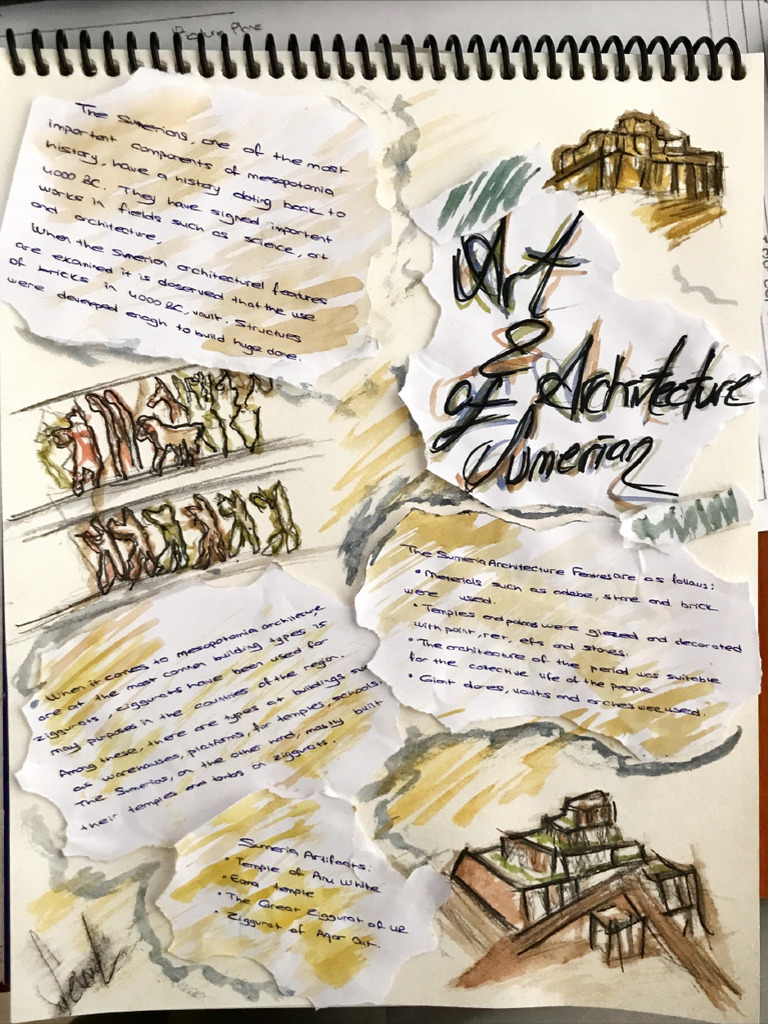 The Sumerians, one of the most
important components of mesopotamia
history, have a history dating back to
4000 BC. They have signed important
works in fields such as science, art
and architecture,
When the sumerian architecturel features
are examined it is observed that the use
of bricks in 4000 BC, vault. Structues
were developed enogh to build huge dome.
Art
&
of Architecture
Sumerian
The Sumeria Architecture Features are as follows:
• Materials such as adobe, stone and brick
were used.
• Temples and palaces were glazed and decorated
with paint, and stones.
• The architecture of the period was suitable
for the collective life of the people
• Giant domes, vaults and arches were used.
• When it comes to mesopotamia architecture
are at the most common building types is
ziggurats, ziggurats have been used for
may purposes in the countries of the region.
Among these, there are types at buildings such
as warehouses, platforms, for temples, schools.
The Sumerias, on the other hand, mostly built
their temples and tombs on ziggurats.
Sumeria Artifacts:
• Temple of Anu White
• Eana temple
• The Great Ziggurat of UR
• Ziggurat of Aqar Quf